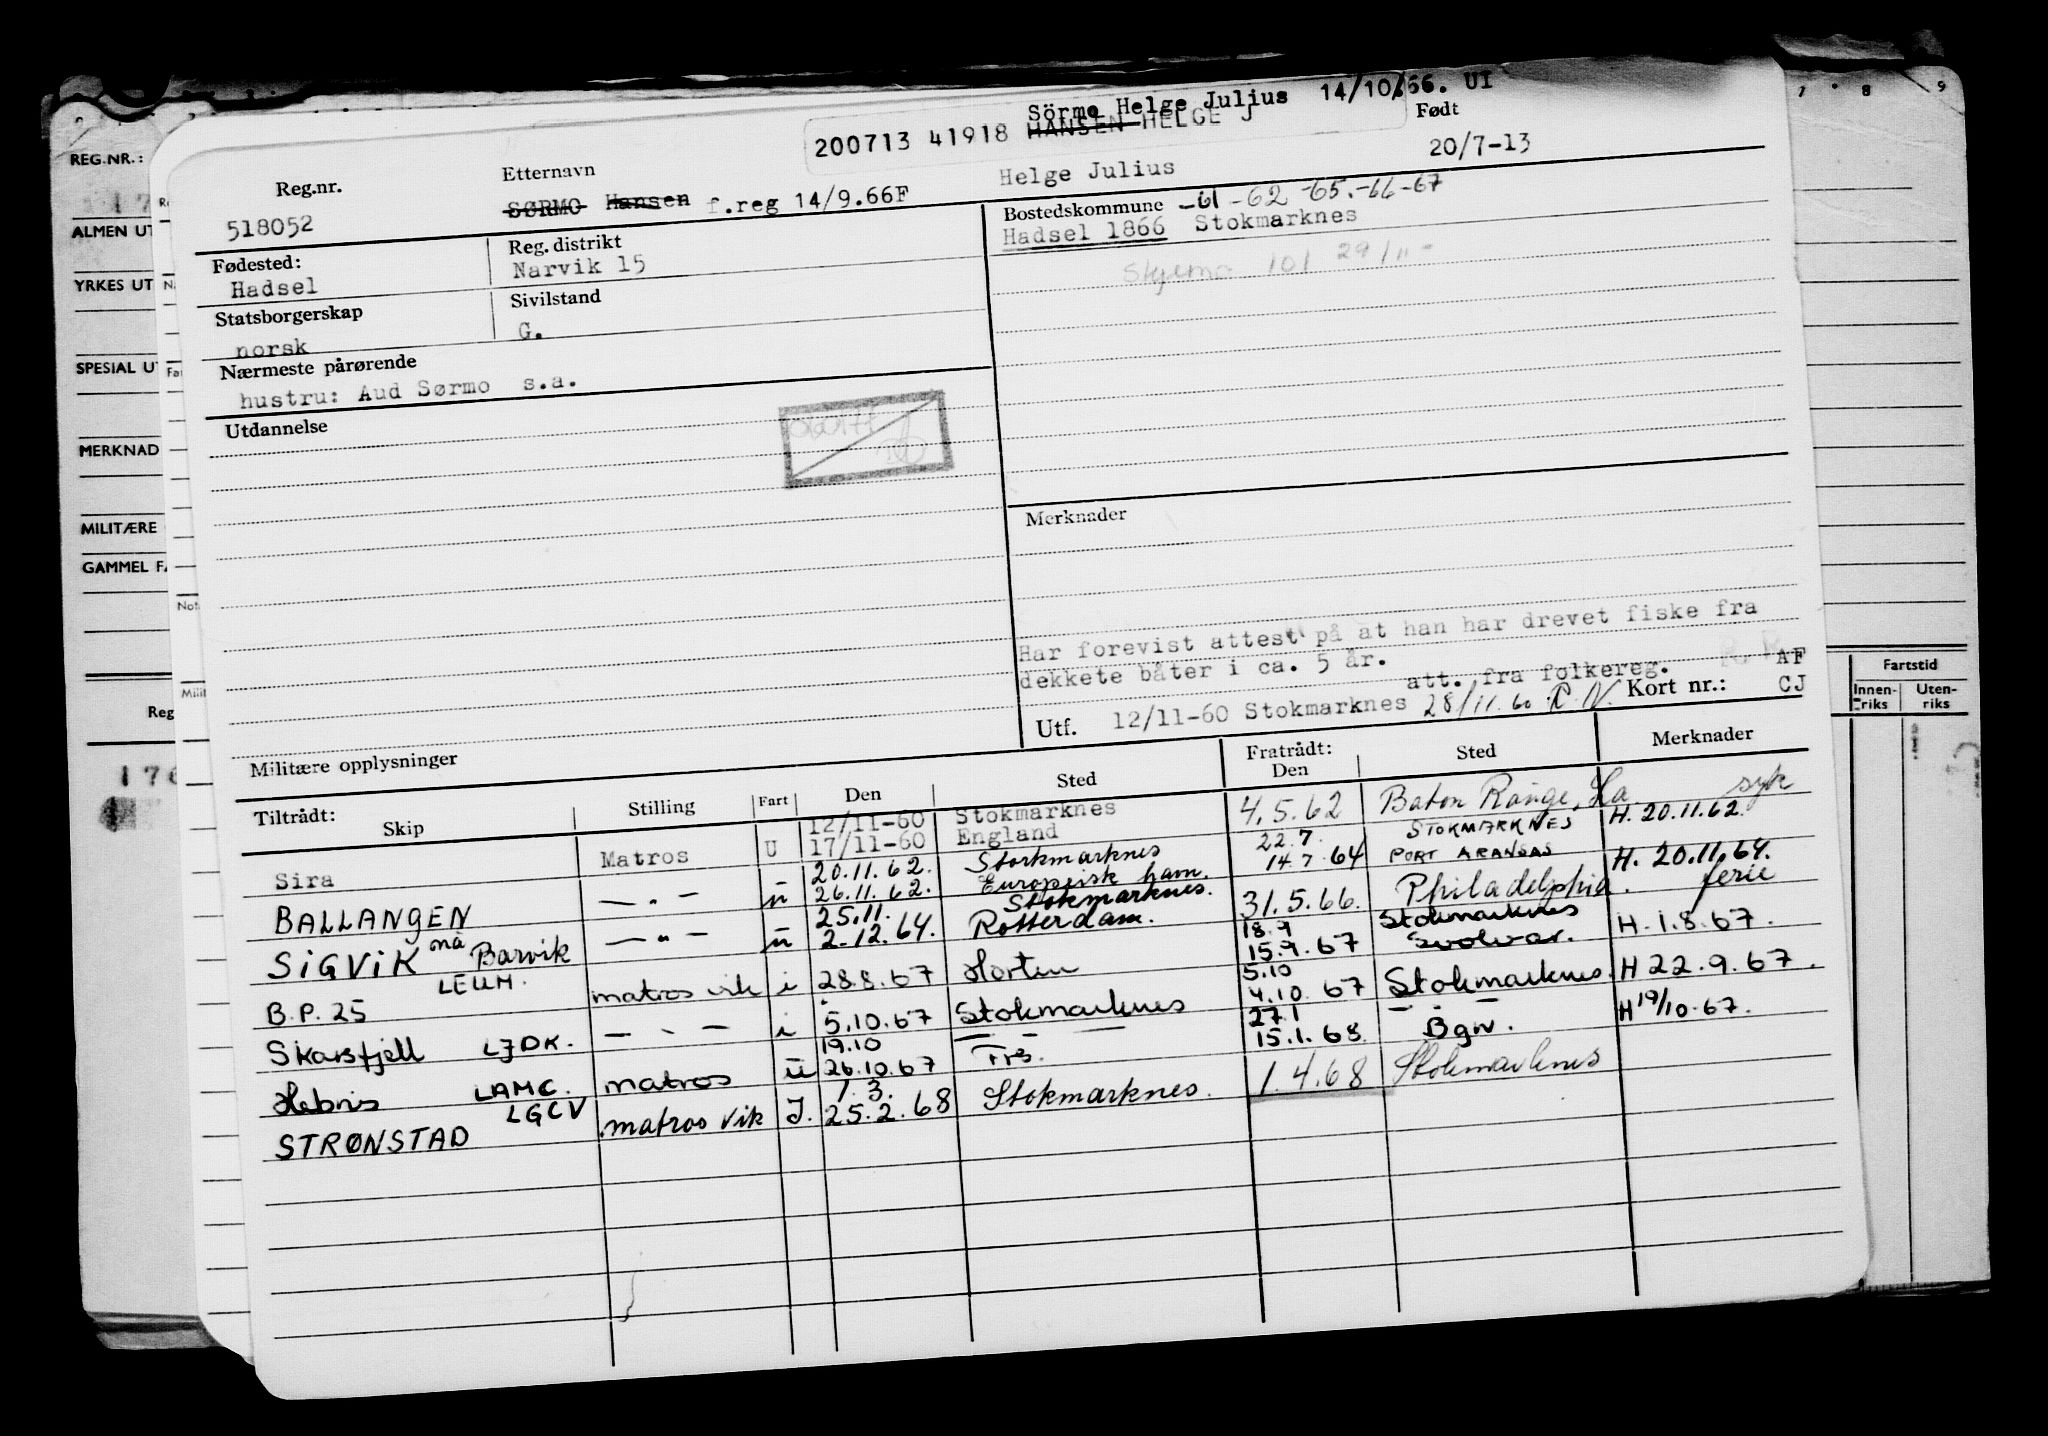 Sörmo Helge Julius 14/10/66. UI
200713 41918 HANSEN HELGE J
Reg.nr. Etternavn Født
518052 SØRMO Hansen f.reg 14/9.66F Helge Julius 20/7-13
Fødested: Reg. distrikt Bostedskommune -61-62-65.-66-67
Hadsel Narvik 15 Hadsel 1866 Stokmarknes
Skjema 101 29/11-
Statsborgerskap Sivilstand
norsk G.
Nærmeste pårørende
hustru: Aud Sørmo s.a.
Utdannelse
Merknader
Har forevist attest på at han har drevet fiske fra
dekkete båter i ca. 5 år.
att. fra folkereg. AF
Utf. 12/11-60 Stokmarknes 28/11.60 Kort nr.: CJ
Militære opplysninger
Tiltrådt: Fratrådt:
Skip Stilling Fart Den Sted Den Sted Merknader
12/11-60 Stokmarknes
Sira Matros U 17/11-60 England 4.5.62 Baton Range, La syk
20.11.62. Storkmarknes 22.7. STOKMARKNES H. 20.11.62.
BALLANGEN — " — u 26.11.62. Europeisk ham. 14.7.64 PORT ARANSAS
25.11. Stokmarknes. H. 20.11.64.
SiGViK nå Barvik — " — u 2-12.64. Rotterdam. 31.5.66. Philadelphia. ferie
LEUM. 18.9 Stokmarknes
B.P. 25 matros vik i 28.8.67 Horten 15.9.67 Svolvær. H.1.8.67.
5.10
Skarsfjell LJDK. — " — i 5.10.67 Stokmarknes 4.10.67 Stokmarknes. H 22.9.67.
19.10 — " — 27.1 — " —
Hebris LAMC. matros u 26.10.67 Frs. 15.1.68 Bgn. H 19/10.67.
LGCV 1.3.
STRØNSTAD matros vik I. 25.2.68 Stokmarknes. 1.4.68 Stokmarknes
REG.NR.:
ALMEN UT
YRKES UT
SPECIAL U
MERKNAD
MILITÆRE
GAMMEL FA
Reg
176
Fartstid
Innen-riks Uten-riks
7 8 9